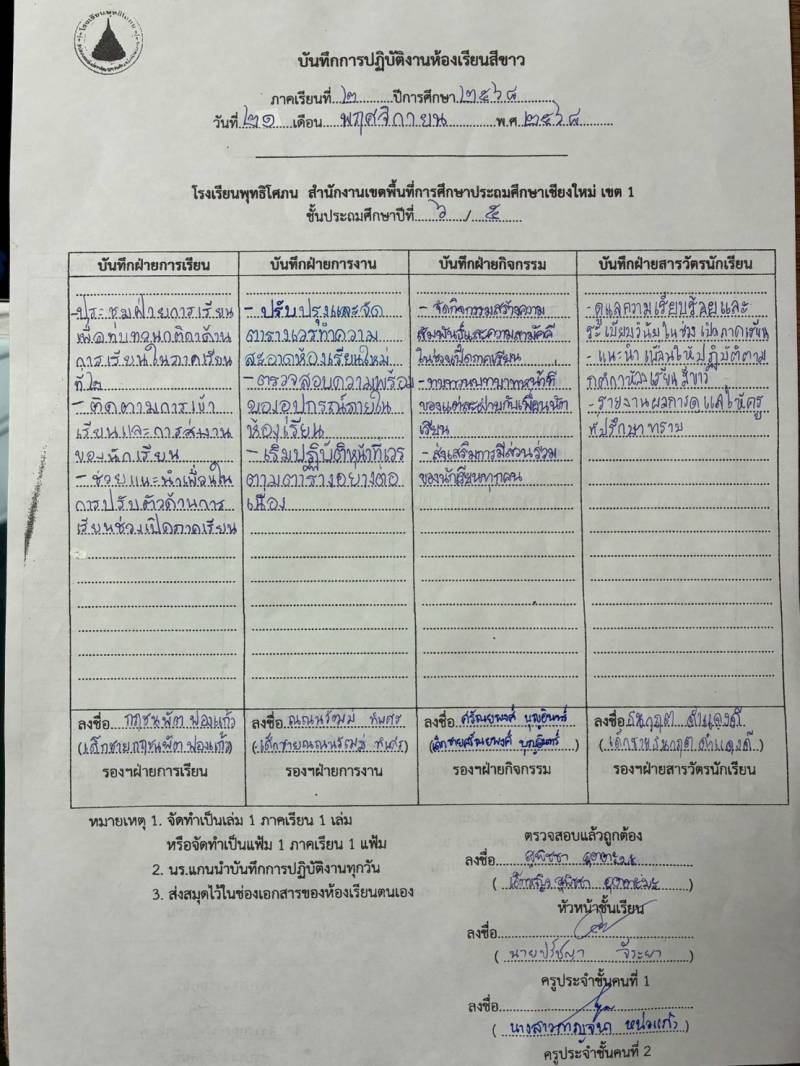 บันทึกการปฏิบัติงานห้องเรียนสีขาว
ภาคเรียนที่ ๒ ปีการศึกษา ๒๕๖๘
วันที่ ๒๑ เดือน พฤศจิกายน พ.ศ ๒๕๖๘
โรงเรียนพุทธิโศภน สำนักงานเขตพื้นที่การศึกษาประถมศึกษาเชียงใหม่ เขต 1
ชั้นประถมศึกษาปีที่ ๖ / ๕
บันทึกฝ่ายการเรียน
-ประชุมฝ่ายการเรียน
เพื่อทบทวนกติกาด้าน
การเรียนในภาคเรียน
ที่๒
- ติดตามการเข้า
เรียนและการส่งงาน
ของนักเรียน
- ช่วยแนะนำเพื่อนใน
การปรับตัวด้านการ
เรียนช่วงเปิดภาคเรียน
ลงชื่อ
รองฯฝ่ายการเรียน
บันทึกฝ่ายการงาน
- ปรับปรุงและจัด
ตารางเวรทำความ
สะอาดห้องเรียนใหม่
- ตรวจสอบความพร้อม
ของอุปกรณ์ภายใน
ห้องเรียน
- เริ่มปฏิบัติหน้าที่เวร
ตามตารางอย่างต่อ
เนื่อง
ลงชื่อ
รองฯฝ่ายการงาน
บันทึกฝ่ายกิจกรรม
- จัดกิจกรรมสร้างความ
สัมพันธ์และความสามัคคี
ในช่วงเปิดภาคเรียน
- ทบทวนบทบาทหน้าที่
ของแต่ละฝ่ายกับเพื่อนนัก
เรียน
- ส่งเสริมการมีส่วนร่วม
ของนักเรียนทุกคน
ลงชื่อ
รองฯฝ่ายกิจกรรม
บันทึกฝ่ายสารวัตรนักเรียน
- ดูแลความเรียบร้อยและ
ระเบียบวินัยในช่วงเปิดภาคเรียน
- แนะนำเพื่อนให้ปฏิบัติตาม
กติกาห้องเรียนสีขาว
- รายงานผลการดูแลให้ครู
ที่ปรึกษาทราบ
ลงชื่อ
รองฯฝ่ายสารวัตรนักเรียน
หมายเหตุ 1. จัดทำเป็นเล่ม 1 ภาคเรียน 1 เล่ม
หรือจัดทำเป็นแฟ้ม 1 ภาคเรียน 1 แฟ้ม
2. นร.แกนนำบันทึกการปฏิบัติงานทุกวัน
3. ส่งสมุดไว้ในช่องเอกสารของห้องเรียนตนเอง
ตรวจสอบแล้วถูกต้อง
ลงชื่อ
หัวหน้าชั้นเรียน
ลงชื่อ
( นายปรัชญา จีระยา )
ครูประจำชั้นคนที่ 1
ลงชื่อ
( นางสาวกาญจนา หน่อแก้ว )
ครูประจำชั้นคนที่ 2